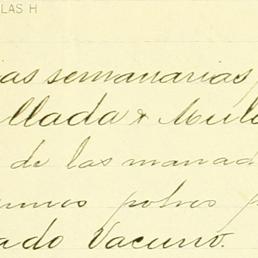 LAS H
ias semanarias
llada & Mul
de las manad
unos potros p
ado Vacuno.